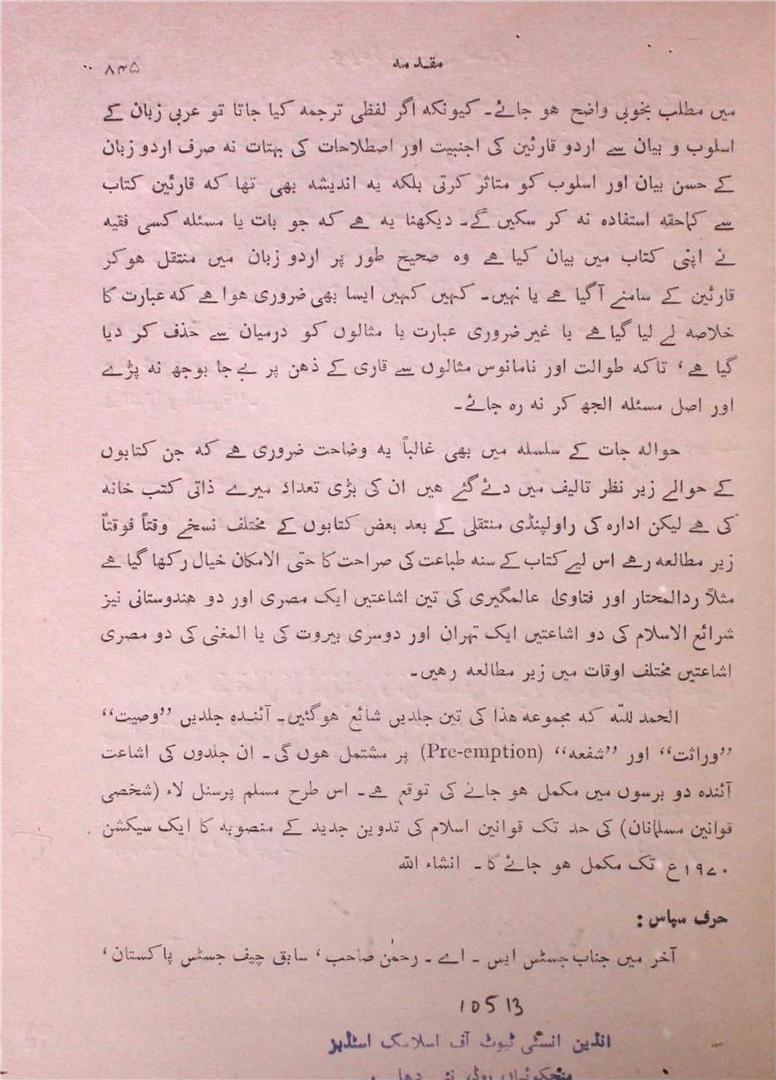 مقدمه ۸۴۵
میں مطلب بخوبی واضح هو جائے۔ کیونکه اگر لفظی ترجمه کیا جاتا تو عربی زبان کے
اسلوب و بیان سے اردو قارئین کی اجنبیت اور اصطلاحات کی بہتات نه صرف اردو زبان
کے حسن بیان اور اسلوب کو متاثر کرتی بلکه یه اندیشه بھی تھا که قارئین کتاب
سے کماحقه استفاده نه کر سکیں گے۔ دیکھنا یه هے که جو بات یا مسئله کسی فقیه
نے اپنی کتاب میں بیان کیا هے وه صحیح طور پر اردو زبان میں منتقل هوکر
قارئین کے سامنے آگیا هے یا نہیں۔ کہیں کہیں ایسا بھی ضروری هوا هے که عبارت کا
خلاصه لے لیا گیا هے یا غیر ضروری عبارت یا مثالوں کو درمیان سے حذف کر دیا
گیا هے، تاکه طوالت اور نامانوس مثالوں سے قاری کے ذهن پر بےجا بوجھ نه پڑے
اور اصل مسئله الجھ کر نه ره جائے۔
حواله جات کے سلسله میں بھی غالباً یه وضاحت ضروری هے که جن کتابوں
کے حوالے زیر نظر تالیف میں دئے گئے هیں ان کی بڑی تعداد میرے ذاتی کتب خانه
کی هے لیکن اداره کی راولپنڈی منتقلی کے بعد بعض کتابوں کے مختلف نسخے وقتاً فوقتاً
زیر مطالعه رهے اس لیے کتاب کے سنه طباعت کی صراحت کا حتی الامکان خیال رکھا گیا هے
مثلاً ردالمحتار اور فتاویٰ عالمگیری کی تین اشاعتیں ایک مصری اور دو هندوستانی نیز
شرائع الاسلام کی دو اشاعتیں ایک تہران اور دوسری بیروت کی یا المغنی کی دو مصری
اشاعتیں مختلف اوقات میں زیر مطالعه رهیں۔
الحمد لله که مجموعه هذا کی تین جلدیں شائع هوگئیں۔ آئنده جلدیں ”وصیت“
”وراثت“ اور ”شفعه“ (Pre-emption) پر مشتمل هوں گی۔ ان جلدوں کی اشاعت
آئنده دو برسوں میں مکمل هو جانے کی توقع هے۔ اس طرح مسلم پرسنل لاء (شخصی
قوانین مسلمانان) کی حد تک قوانین اسلام کی تدوین جدید کے منصوبه کا ایک سیکشن
۱۹۷۰ع تک مکمل هو جائے گا۔ انشاء الله
حرف سپاس :
آخر میں جناب جسٹس ایس ۔ اے ۔ رحمٰن صاحب، سابق چیف جسٹس پاکستان،
10513
انڈین انسٹی ٹیوٹ آف اسلامک اسٹڈیز
روڈ، نئی دهلی